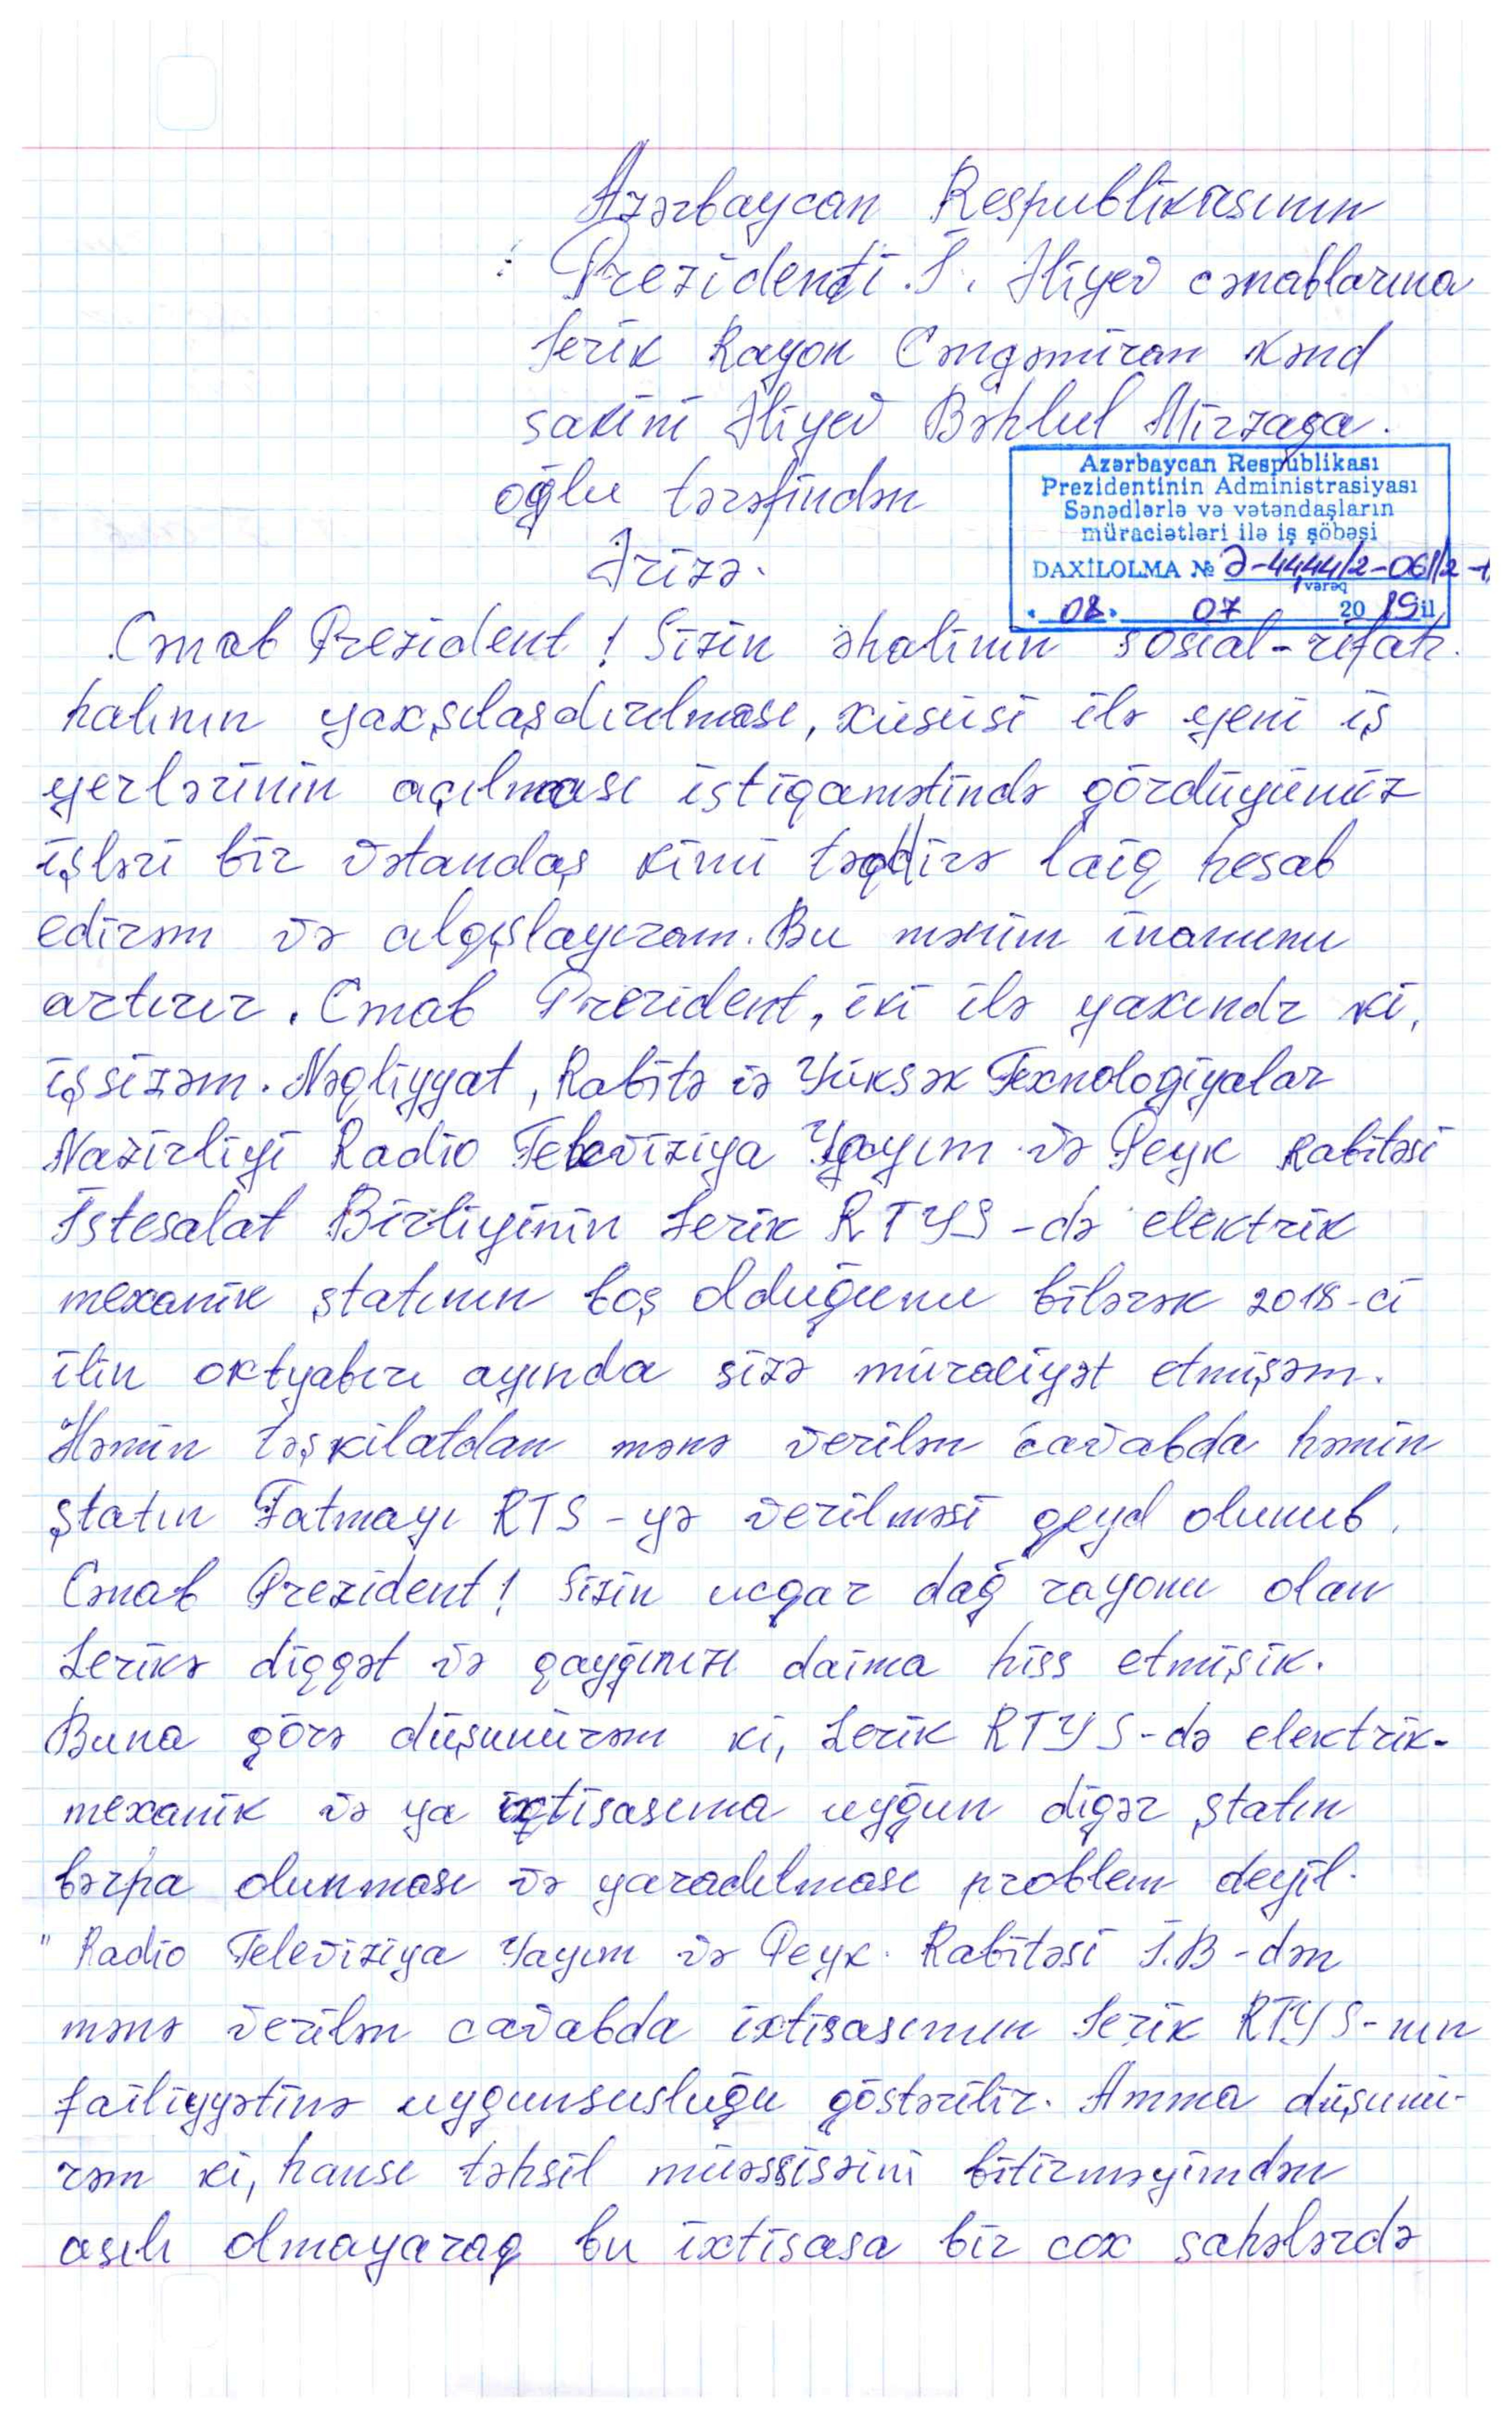 Azərbaycan Respublikasının
Prezidenti İ. Əliyev cənablarına
Lerik Rayon Cəngəmiran kənd
sakini Əliyev Bəhlul Mirzaga
oğlu tərəfindən
Azərbaycan Respublikası
Prezidentinin Administrasiyası
Sənədlərlə və vətəndaşların
müraciətləri ilə iş şöbəsi
DAXİLOLMA № Ə-4444/2-061/2-1
vərəq
08. 07 2019 il
Ərizə.
Cənab Prezident! Sizin əhalinin sosial-rifah
halının yaxşılaşdırılması, xüsüsi ilə yeni iş
yerlərinin açılması istiqamətində gördüyünüz
işləri bir vətandaş kimi təqdirə laiq hesab
edirəm və alqışlayıram. Bu mənim inamımı
artırır. Cənab Prezident, iki ilə yaxındr ki,
işsizəm. Nəqliyyat, Rabitə və Yüksək Texnologiyalar
Nazirliyi Radio Televiziya Yayım və Peyk Rabitəsi
İstesalat Birliyinin Lerik RTYS-də elektrik
mexanik ştatının boş olduğunu bilərək 2018-ci
ilin oktyabırı ayında sizə müraciyət etmişəm.
Həmin təşkilatdan mənə verilən cavabda həmin
ştatın Fatmayı RTS-yə verilməsi qeyd olunub.
Cənab Prezident! Sizin ucqar dağ rayonu olan
Lerikə diqqət və qayğınızı daima hiss etmişik.
Buna görə düşunürəm ki, Lerik RTYS-də elektrik-
mexanik və ya ixtisasıma uyğun digər ştatın
bərpa olunması və yaradılması problem deyil.
" Radio Televiziya Yayım və Peyk Rabitəsi İ.B-dən
mənə verilən cavabda ixtisasımın Lerik RTYS-nın
failiyyətinə uygunsusluğu göstərilir. Amma düşunü-
rəm ki, hansı təhsil müəssisəini bitirməyimdən
asılı olmayaraq bu ixtisasa bir cox sahələrdə